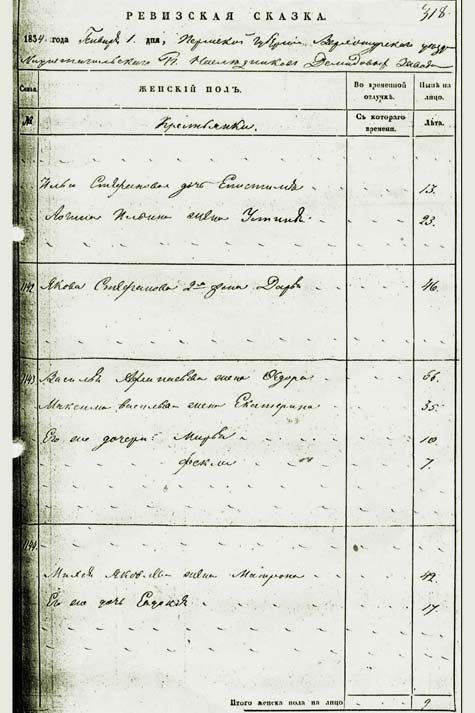 318.
РЕВИЗСКАЯ СКАЗКА.
1834 года Генваря 1. дня, Пермской Губернии Верхотурского уезда
Нижнетагильского Гг. Наследников Демидовых Завода
Семьи. ЖЕНСКІЙ ПОЛЪ. Во временной отлучкѣ. Нынѣ на лицо.
№ Крестьянки. Съ котораго времени. Лѣта.
Ильи Степанова дочь 13.
Логина Ильина жена Устинья 23.
1142 Якова Степанова 2я жена Дарья 46.
1143 Василья жена Федора 56.
Максима Васильева жена Екатерина 35.
Его же дочери: Марья 10
Фекла 7.
1144
Яковлева жена Матрона 42
Его же дочь Евдокея 17
Итого женска пола на лицо 9